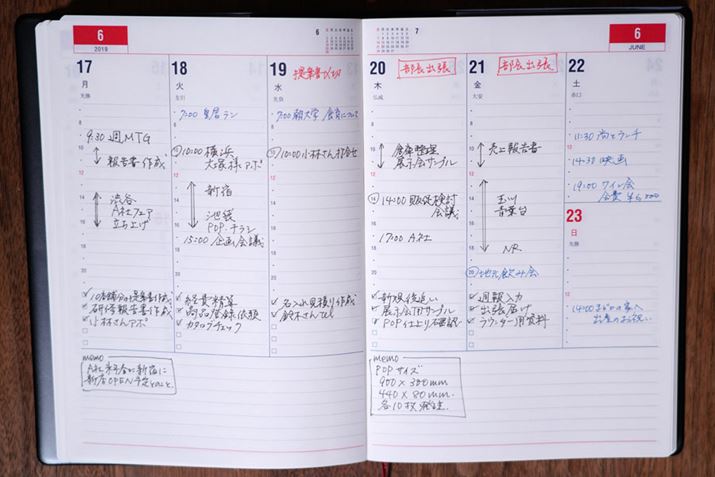 6
2019
17
月
先勝
9:30 週MTG
報告書作成
渋谷
A社フェア
立ち上げ
10店舗分の提案書作成
研修報告書作成
小林さんアポ
18
火
友引
7:00 皇居ラン
10:00 横浜
大塚様アポ
新宿
池袋
POP・チラシ
15:00 企画会議
経費精算
商品登録依頼
カタログチェック
19
水
先負
提案書〆切
7:00 朝大学
10:00 小林さん打合せ
名入れ見積り作成
鈴木さんTEL
memo
新店OPEN予定とのこと
6
7
6
JUNE
20
木
仏滅
部長出張
倉庫整理
展示会サンプル
14:00 販促検討
会議
17:00 A社
新規後追い
POP仕上り確認
21
金
大安
部長出張
売上報告書
玉川
青葉台
NR.
地元飲み会
週報入力
出張届け
ラウンダー用資料
22
土
赤口
11:30 尚とランチ
14:30 映画
19:00 ワイン会
会費 ¥6,500
23
日
先勝
14:00
出産のお祝い
memo
POPサイズ
900×300mm
440×80mm.
各10枚発注.